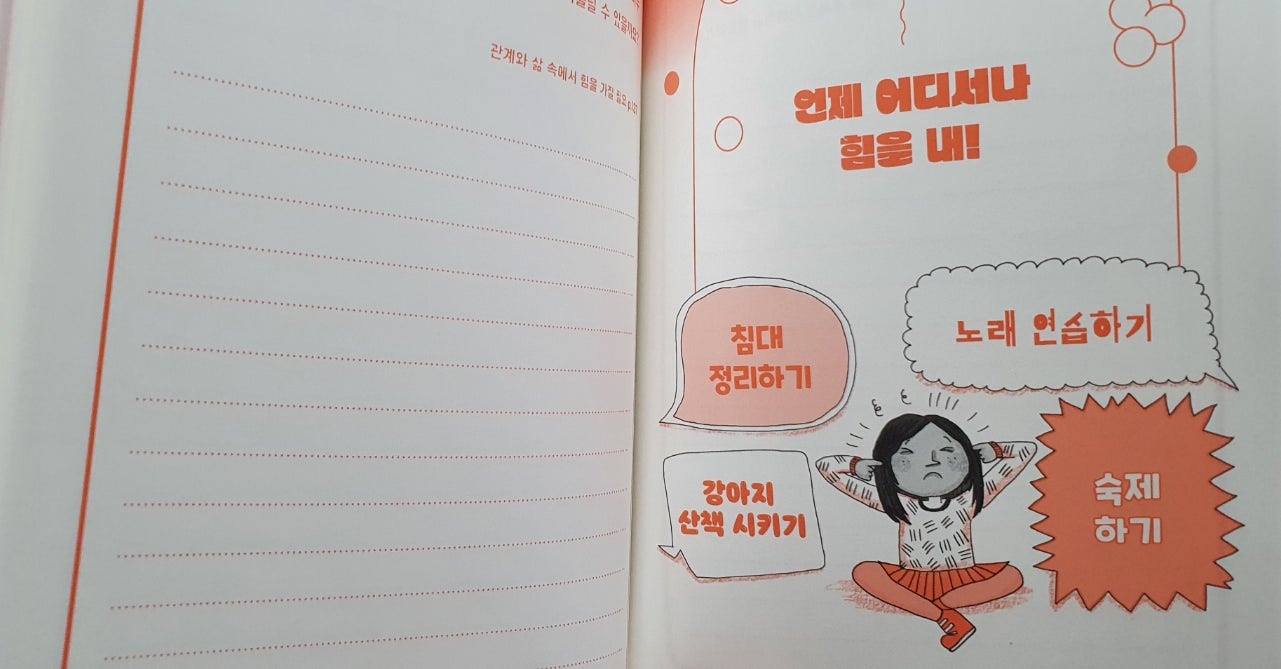 수 있을까요?
관계와 삶 속에서 힘을 가질 필요
언제 어디서나
힘을 내!
침대
정리하기
노래 연습하기
강아지
산책 시키기
숙제
하기